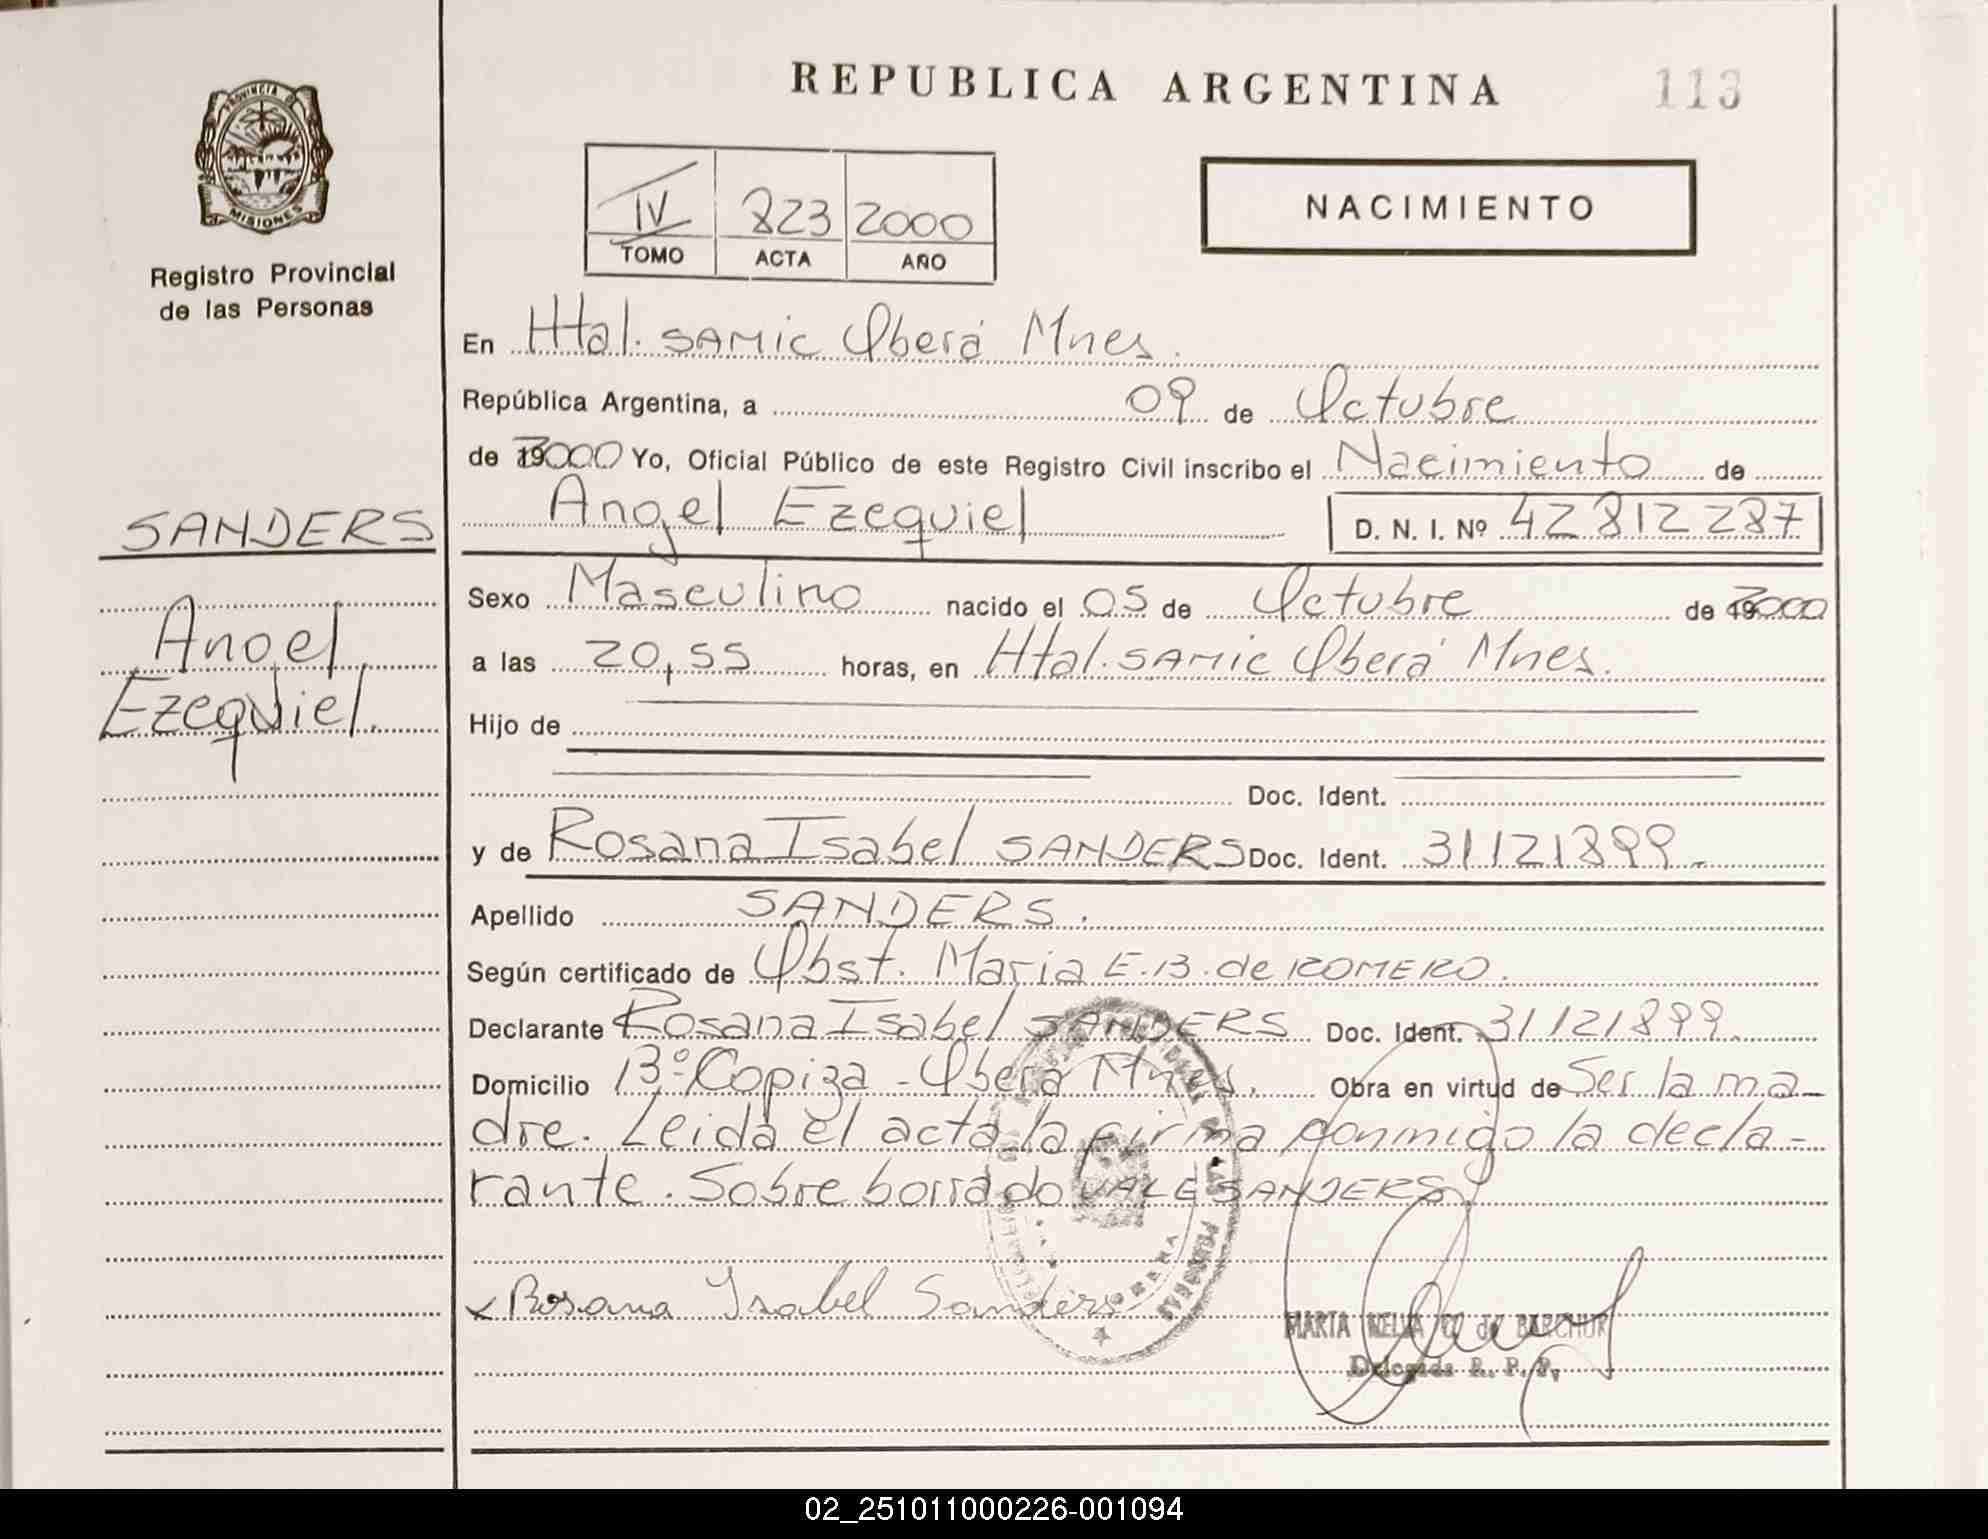 REPUBLICA ARGENTINA
113
PROVINCIA DE
MISIONES
Registro Provincial
de las Personas
IV 823 2000
TOMO ACTA AÑO
NACIMIENTO
En Htal. SAMIC Oberá Mnes.
República Argentina, a 09 de Octubre
de 2000 Yo, Oficial Público de este Registro Civil inscribo el Nacimiento de
Angel Ezequiel D. N. I. Nº 42812287
SANDERS
Angel
Ezequiel.
Sexo Masculino nacido el 05 de Octubre de 2000
a las 20,55 horas, en Htal. SAMIC Oberá Mnes.
Hijo de
Doc. Ident.
y de Rosana Isabel SANDERS Doc. Ident. 31121899.
Apellido SANDERS.
Según certificado de Obst. Maria E.B. de ROMERO.
Declarante Rosana Isabel SANDERS Doc. Ident. 31121899.
Domicilio 13º Copiza - Oberá Mnes. Obra en virtud de Ser la ma-
dre. Leida el acta la firma conmigo la decla-
rante. Sobre borrado VALE SANDERS
x Rosana Isabel Sanders
MARTA NELVA de BARCHUK
Delegada R. P. P.
02_251011000226-001094